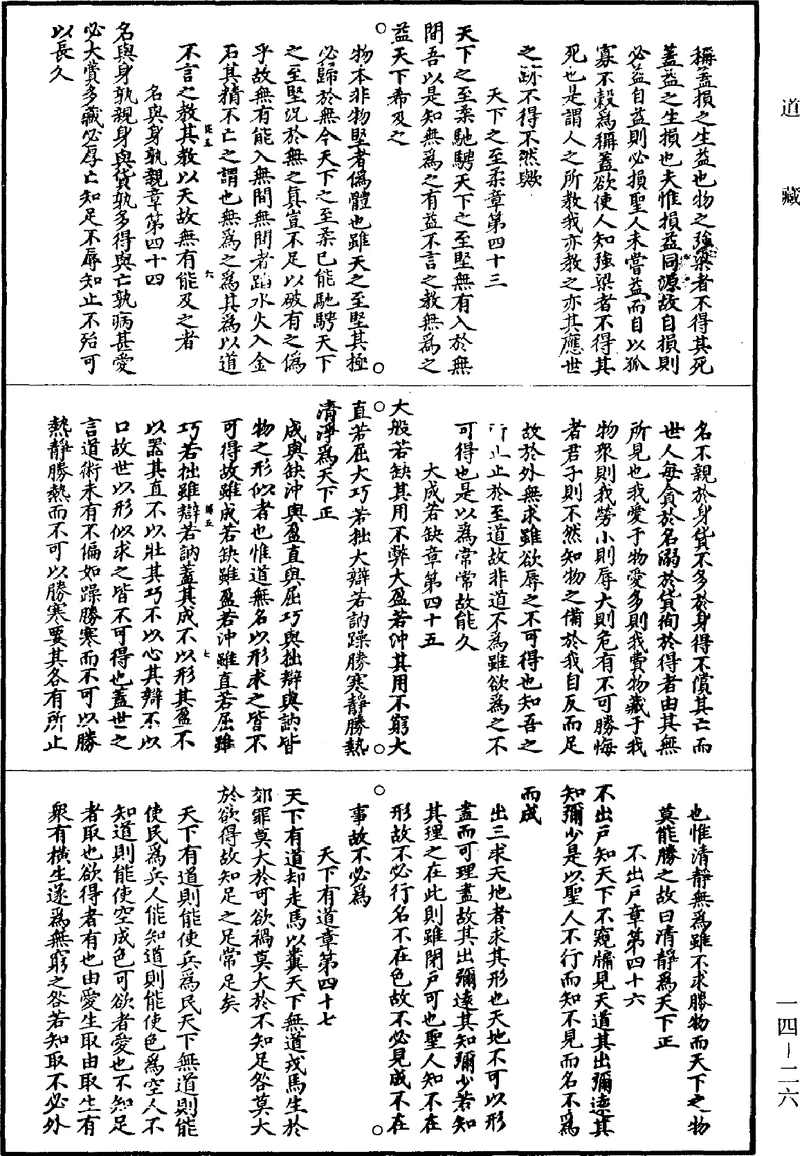 道藏
稱蓋損之生益也物之強梁者不得其死
蓋益之生損也夫惟損益同源故自損則
必益自益則必損聖人未嘗益而自以孤
寡不穀為稱蓋欲使人知強梁者不得其
死也是謂人之所教我亦教之亦其應世
之跡不得不然歟
天下之至柔章第四十三
天下之至柔馳騁天下之至堅無有入於無
間吾以是知無為之有益不言之教無為之
益天下希及之
物本非物堅者偽體也雖天之至堅其極
必歸於無今天下之至柔已能馳騁天下
之至堅況於無之真豈不足以破有之偽
乎故無有能入無間無間者蹈水火入金
石其精不亡之謂也無為之為其為以道
不言之教其教以天故無有能及之者
名與身孰親章第四十四
名與身孰親身與貨孰多得與亡孰病甚愛
必大費多藏必厚亡知足不辱知止不殆可
以長久
名不親於身貨不多於身得不償其亡而
世人每貪於名溺於貨徇於得者由其無
所見也我愛于物愛多則我費物藏于我
物衆則我勞小則辱大則危有不可勝悔
者君子則不然知物之備於我自反而足
故於外無求雖欲辱之不可得也知吾之
所止止於至道故非道不為雖欲為之不
可得也是以為常常故能久
大成若缺章第四十五
大般若缺其用不弊大盈若沖其用不窮大
直若屈大巧若拙大辯若訥躁勝寒靜勝熱
清淨為天下正
成與缺沖與盈直與屈巧與拙辯與訥皆
物之形似者也惟道無名以形求之皆不
可得故雖成若缺雖盈若沖雖直若屈雖
巧若拙雖辯若訥蓋其成不以形其盈不
以器其直不以壯其巧不以心其辯不以
口故世以形似求之皆不可得也蓋世之
言道術未有不偏如躁勝寒而不可以勝
熱靜勝熱而不可以勝寒要其各有所止
也惟清靜無為雖不求勝物而天下之物
莫能勝之故曰清靜為天下正
不出戶章第四十六
不出戶知天下不窺牖見天道其出彌遠其
知彌少是以聖人不行而知不見而名不為
而成
出三求天地者求其形也天地不可以形
盡而可理盡故其出彌遠其知彌少若知
其理之在此則雖閉戶可也聖人知不在
形故不必行名不在色故不必見成不在
事故不必為
天下有道章第四十七
天下有道却走馬以糞天下無道戎馬生於
郊罪莫大於可欲禍莫大於不知足咎莫大
於欲得故知足之足常足矣
天下有道則能使兵為民天下無道則能
使民為兵人能知道則能使色為空人不
知道則能使空成色可欲者愛也不知足
者取也欲得者有也由愛生取由取生有
衆有橫生遂為無窮之咎若知取不必外
一四-二六